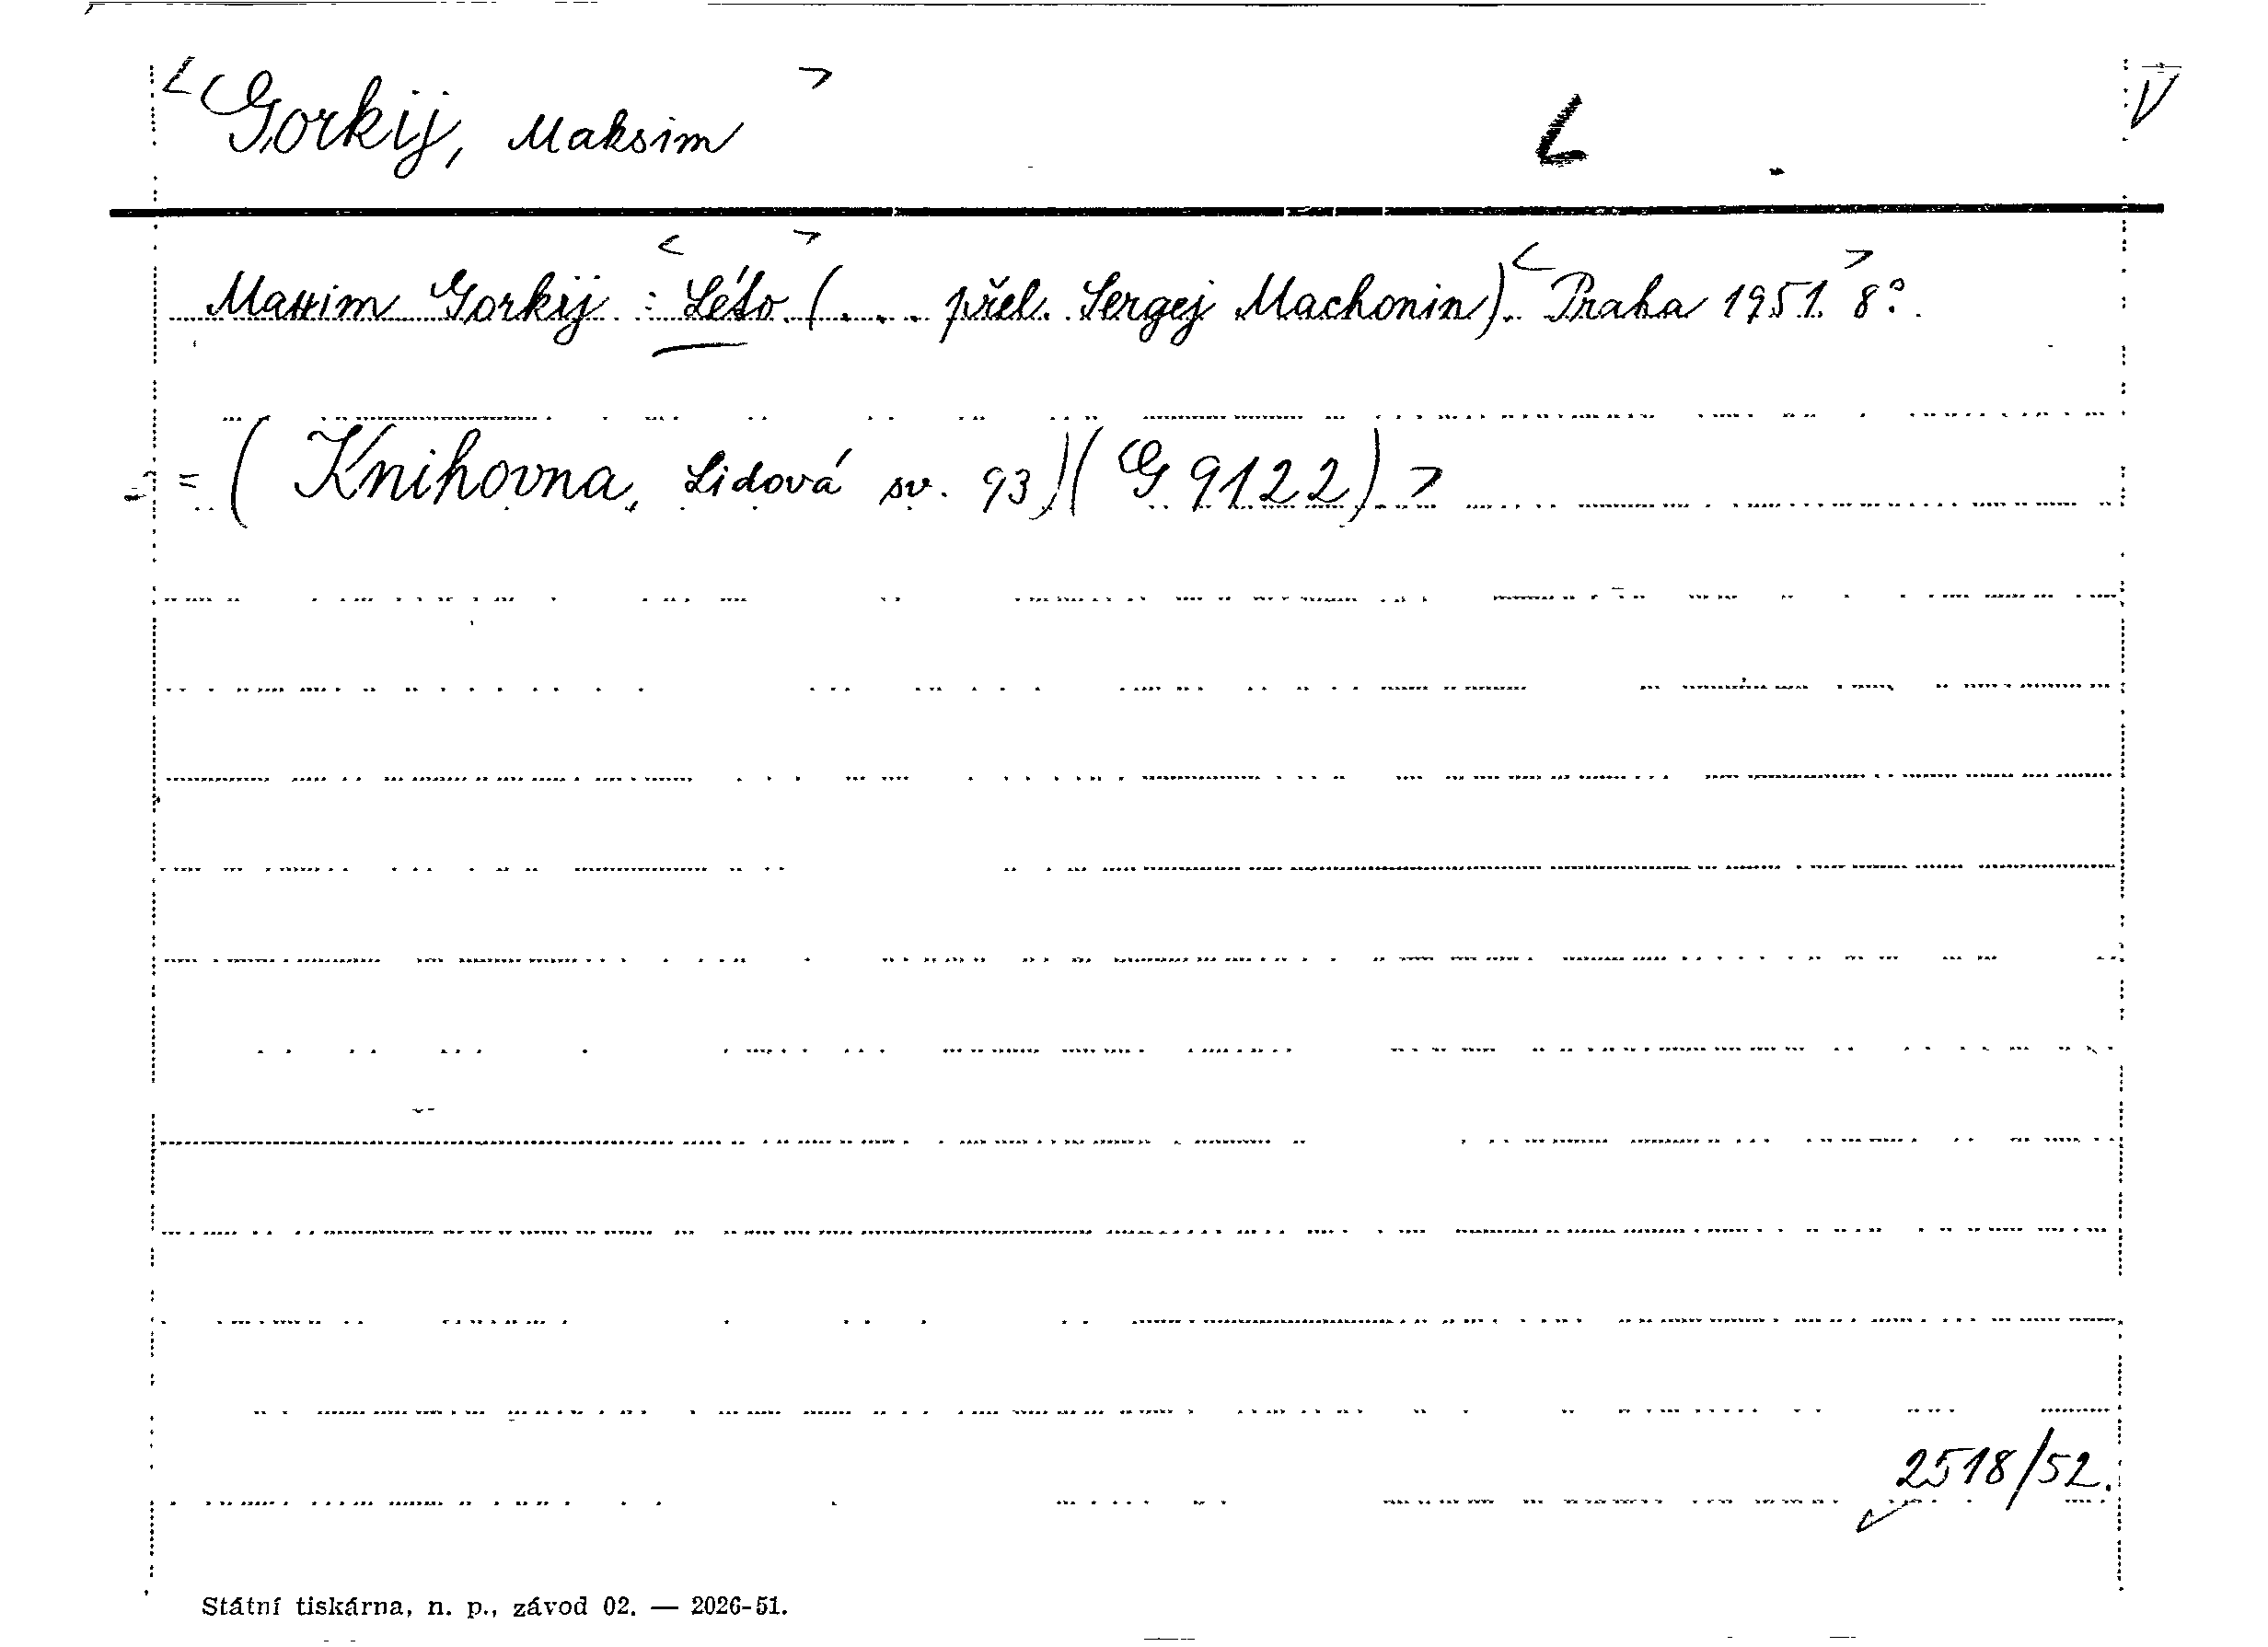 <Gorkij, Maksim> L V
Maxim Gorkij : <Léto> (... přel. Sergej Machonin). <Praha 1951.> 8°.
= (Knihovna, Lidová sv. 93)(G 9122)>
2518/52.
Státní tiskárna, n. p., závod 02. — 2026-51.